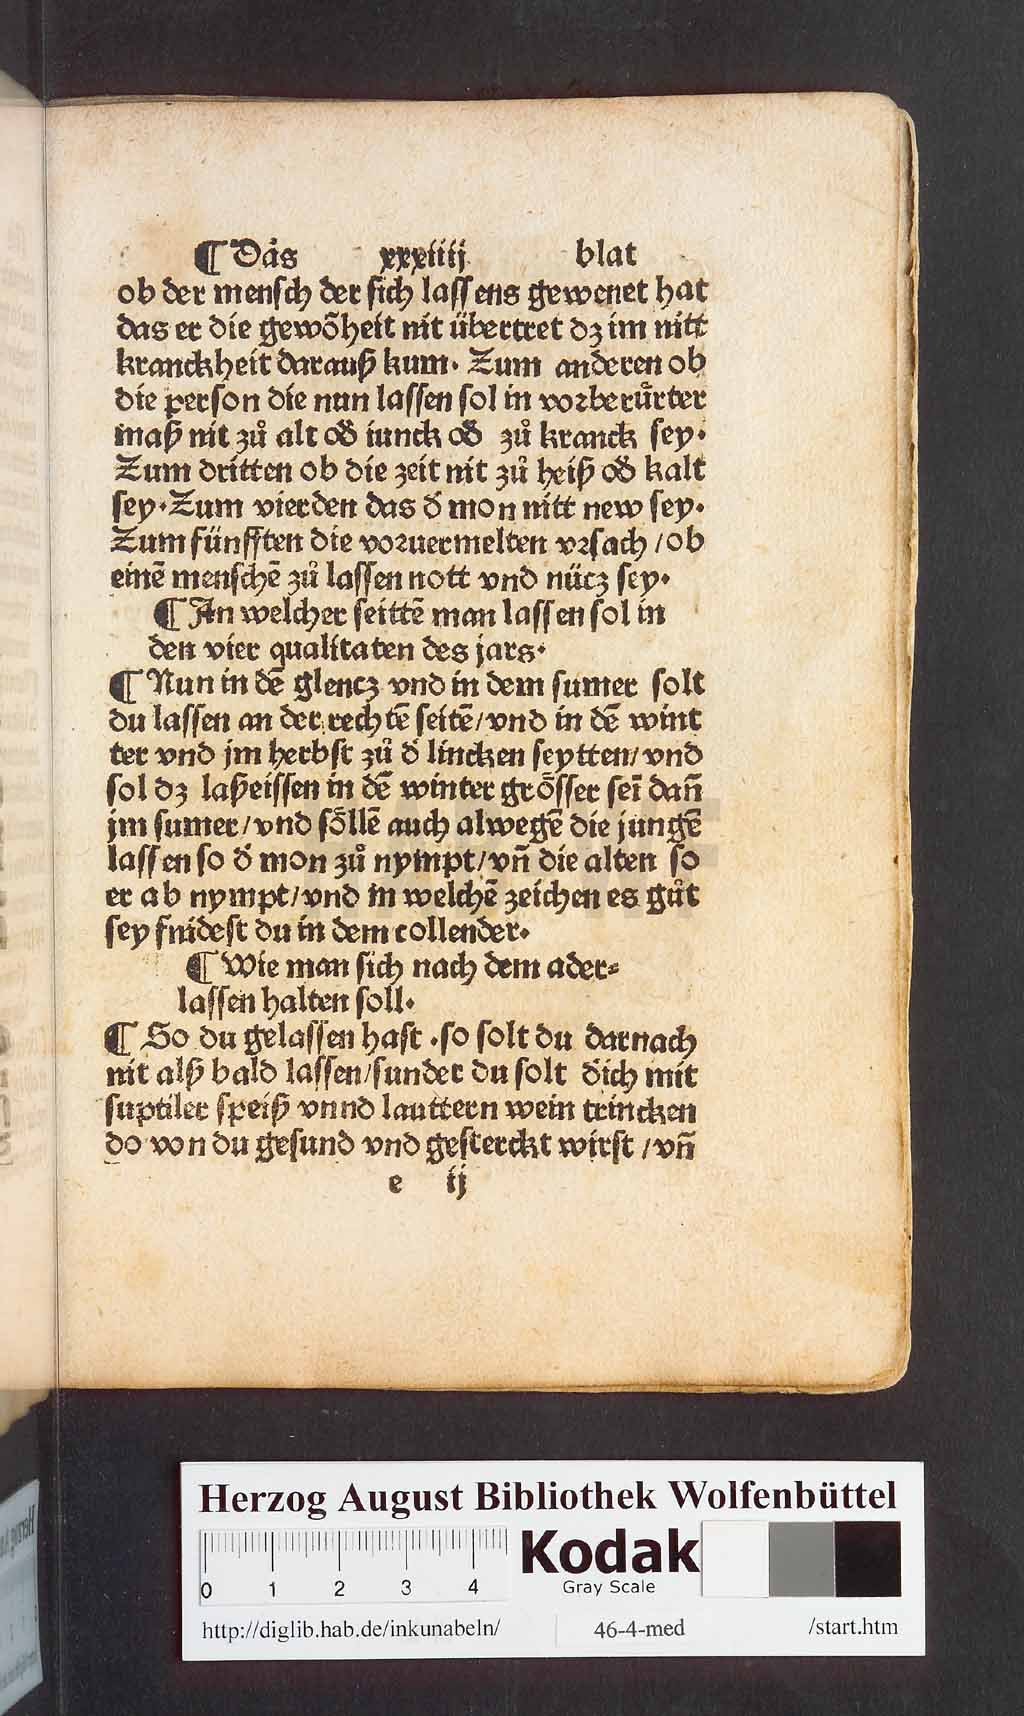 ¶ Das xxxiiij blat
ob der mensch der sich lassens gewenet hat
das er die gewõheit nit übertret dz im nitt
kranckheit darauß kum. Zum anderen ob
die person die nun lassen sol in vorberuͤrter
maß nit zuͦ alt oď iunck oď zuͦ kranck sey.
Zum dritten ob die zeit nit zuͦ heiß oď kalt
sey. Zum vierden das ď mon nitt new sey.
Zum fünfften die voruermelten vrsach / ob
einē menschē zuͦ lassen nott vnd nücz sey.
¶ An welcher seittē man lassen sol in
den vier qualitaten des jars.
¶ Nun in dē glencz vnd in dem sumer solt
du lassen an der rechtē seitē / vnd in dē wint
ter vnd jm herbst zuͦ ď lincken seytten / vnd
sol dz laßeissen in dē winter groͤsser seī dañ
jm sumer / vnd soͤllē auch alwegē die jungē
lassen so ď mon zuͦ nympt / vñ die alten so
er ab nympt / vnd in welchē zeichen es guͦt
sey fnidest du in dem collender.
¶ Wie man sich nach dem ader⸗
lassen halten soll.
¶ So du gelassen hast . so solt du darnach
nit alß bald lassen / sunder du solt dich mit
suptiler speiß vnnd lauttern wein trincken
do von du gesund vnd gesterckt wirst / vñ
e ij
Herzog August Bibliothek Wolfenbüttel
0 1 2 3 4
Kodak
Gray Scale
http://diglib.hab.de/inkunabeln/ 46-4-med /start.htm